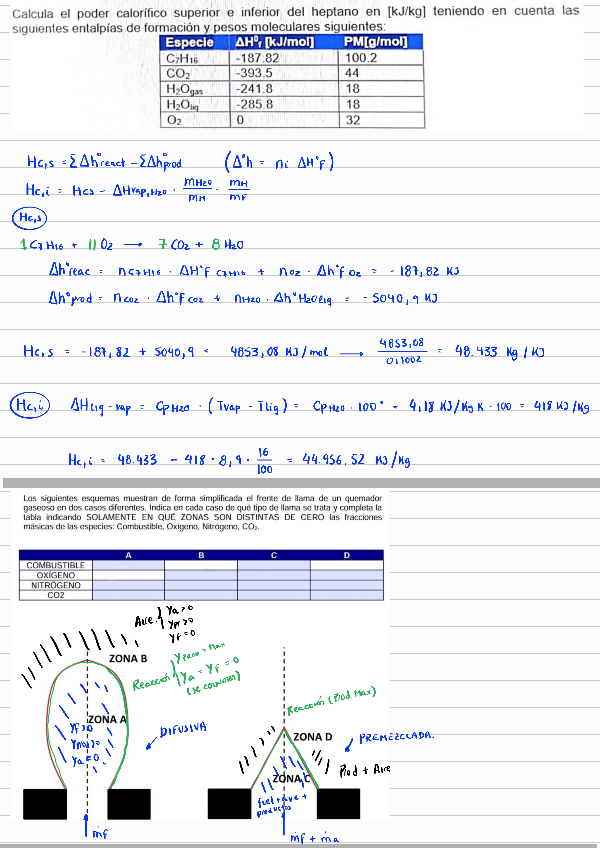 Calcula el poder calorífico superior e inferior del heptano en [kJ/kg] teniendo en cuenta las
siguientes entalpías de formación y pesos moleculares siguientes:
Especie ΔH⁰f [kJ/mol] PM[g/mol]
C7H16 -187.82 100.2
CO2 -393.5 44
H2Ogas -241.8 18
H2Oliq -285.8 18
O2 0 32
Hc,s = ΣΔh°react - ΣΔh°prod (Δ°h = ni ΔH°f)
Hc,i = Hcs - ΔHvap,H2O · mH2O/mH · mH/mF
Hc,s
1 C7H16 + 11 O2 → 7 CO2 + 8 H2O
Δh°reac = nC7H16 · ΔH°f C7H16 + nO2 · Δh°f O2 = -187,82 KJ
Δh°prod = nCO2 · Δh°f CO2 + nH2O · Δh°H2Oliq = -5040,9 KJ
Hc,s = -187,82 + 5040,9 = 4853,08 KJ/mol → 4853,08/0,1002 = 48.433 Kg/KJ
Hc,i ΔHliq-vap = CpH2O · (Tvap - Tliq) = CpH2O · 100° = 4,18 KJ/Kg K · 100 = 418 KJ/Kg
Hc,i = 48.433 - 418 · 8,9 · 16/100 = 44.956,52 KJ/Kg
Los siguientes esquemas muestran de forma simplificada el frente de llama de un quemador
gaseoso en dos casos diferentes. Indica en cada caso de qué tipo de llama se trata y completa la
tabla indicando SOLAMENTE EN QUÉ ZONAS SON DISTINTAS DE CERO las fracciones
másicas de las especies: Combustible, Oxígeno, Nitrógeno, CO2.
A B C D
COMBUSTIBLE
OXÍGENO
NITRÓGENO
CO2
Aire { Ya>0
Ypr>0
YF=0
ZONA B
Reacción { Yprod = Max
Ya = YF = 0
(se consumen)
ZONA A
YF>0
Yprod>0
Ya=0
DIFUSIVA
ṁf
Reacción (Prod Max)
ZONA D
PREMEZCLADA.
Prod + Aire
ZONA C
fuel + aire +
productos
ṁf + ṁa